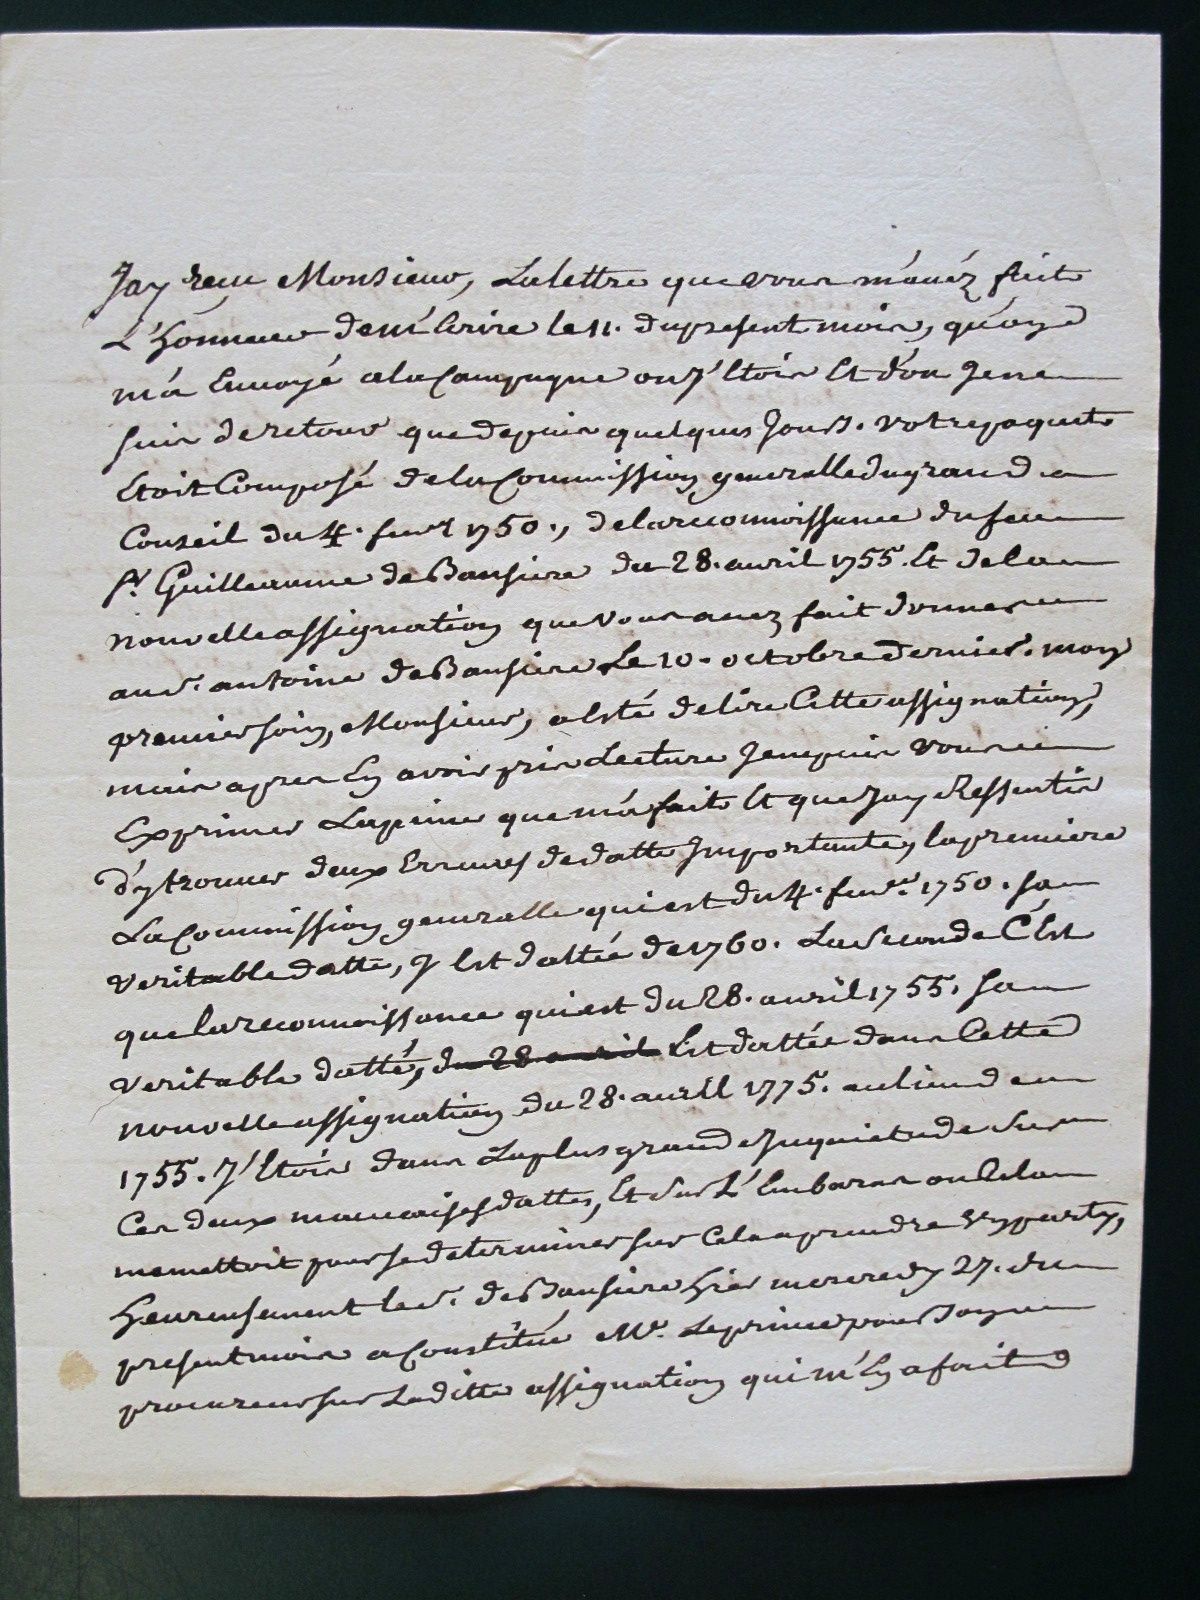 Jay recu Monsieur, La lettre que vous m'auéz fait
L'honneur de m'Ecrire le 11. du present mois, qu'on
m'a Enuoyé a la Campagne ou j'Etois Et d'ou Je ne
suis de retour que depuis quelques Jours. votre paquet
Etoit Composé de la Commission generalle du grand
Conseil du 4. feur 1750., de la reconnoissance du feu
Sr. Guilleaume de Bansiere du 28. auril 1755. Et de la
nouvelle assignation que vous auez fait donner
au Sr. antoine de Bansiere Le 10. octobre dernier. mon
premier soin, Monsieur, a Esté de lire Cette assignation,
mais apres En avoir pris Lecture Je ne puis vous
Exprimer La peine que m'a fait Et que Jay Ressentie
d'y trouver deux Erreurs de datte Importante, la premiere
La Commission generalle qui est du 4. feur. 1750. sa
veritable datte, y Est dattée de 1760. La Seconde C'Est
que la reconnoissance qui est du 28. auril 1755. sa
veritable datte, du 28 auril Est dattée dans Cette
nouvelle assignation du 28. auril 1775. au lieu de
1755. J'Etois dans La plus grande Inquietude Sur
Ces deux mauvaises dattes, Et Sur L'Embaras ou Cela
me mettoit pour se determiner sur Cela a prendre un party,
heureusement le Sr. de Bansiere hier mercredy 27. du
present mois a Constitué Me. Leprince pour Son
procureur sur Laditte assignation qui m'En a fait